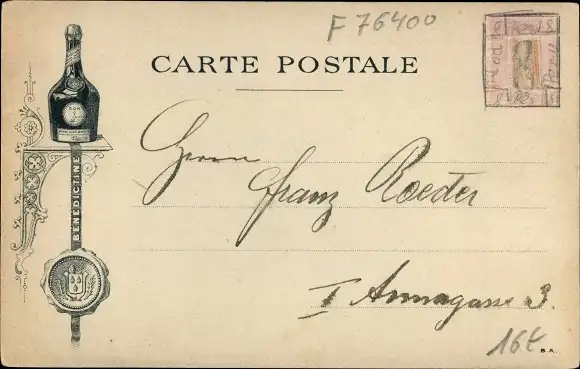 F 76400
CARTE POSTALE
DOM
BENEDICTINE
Herrn
Franz Roeder
I Annagasse 3.
16€
B.A.